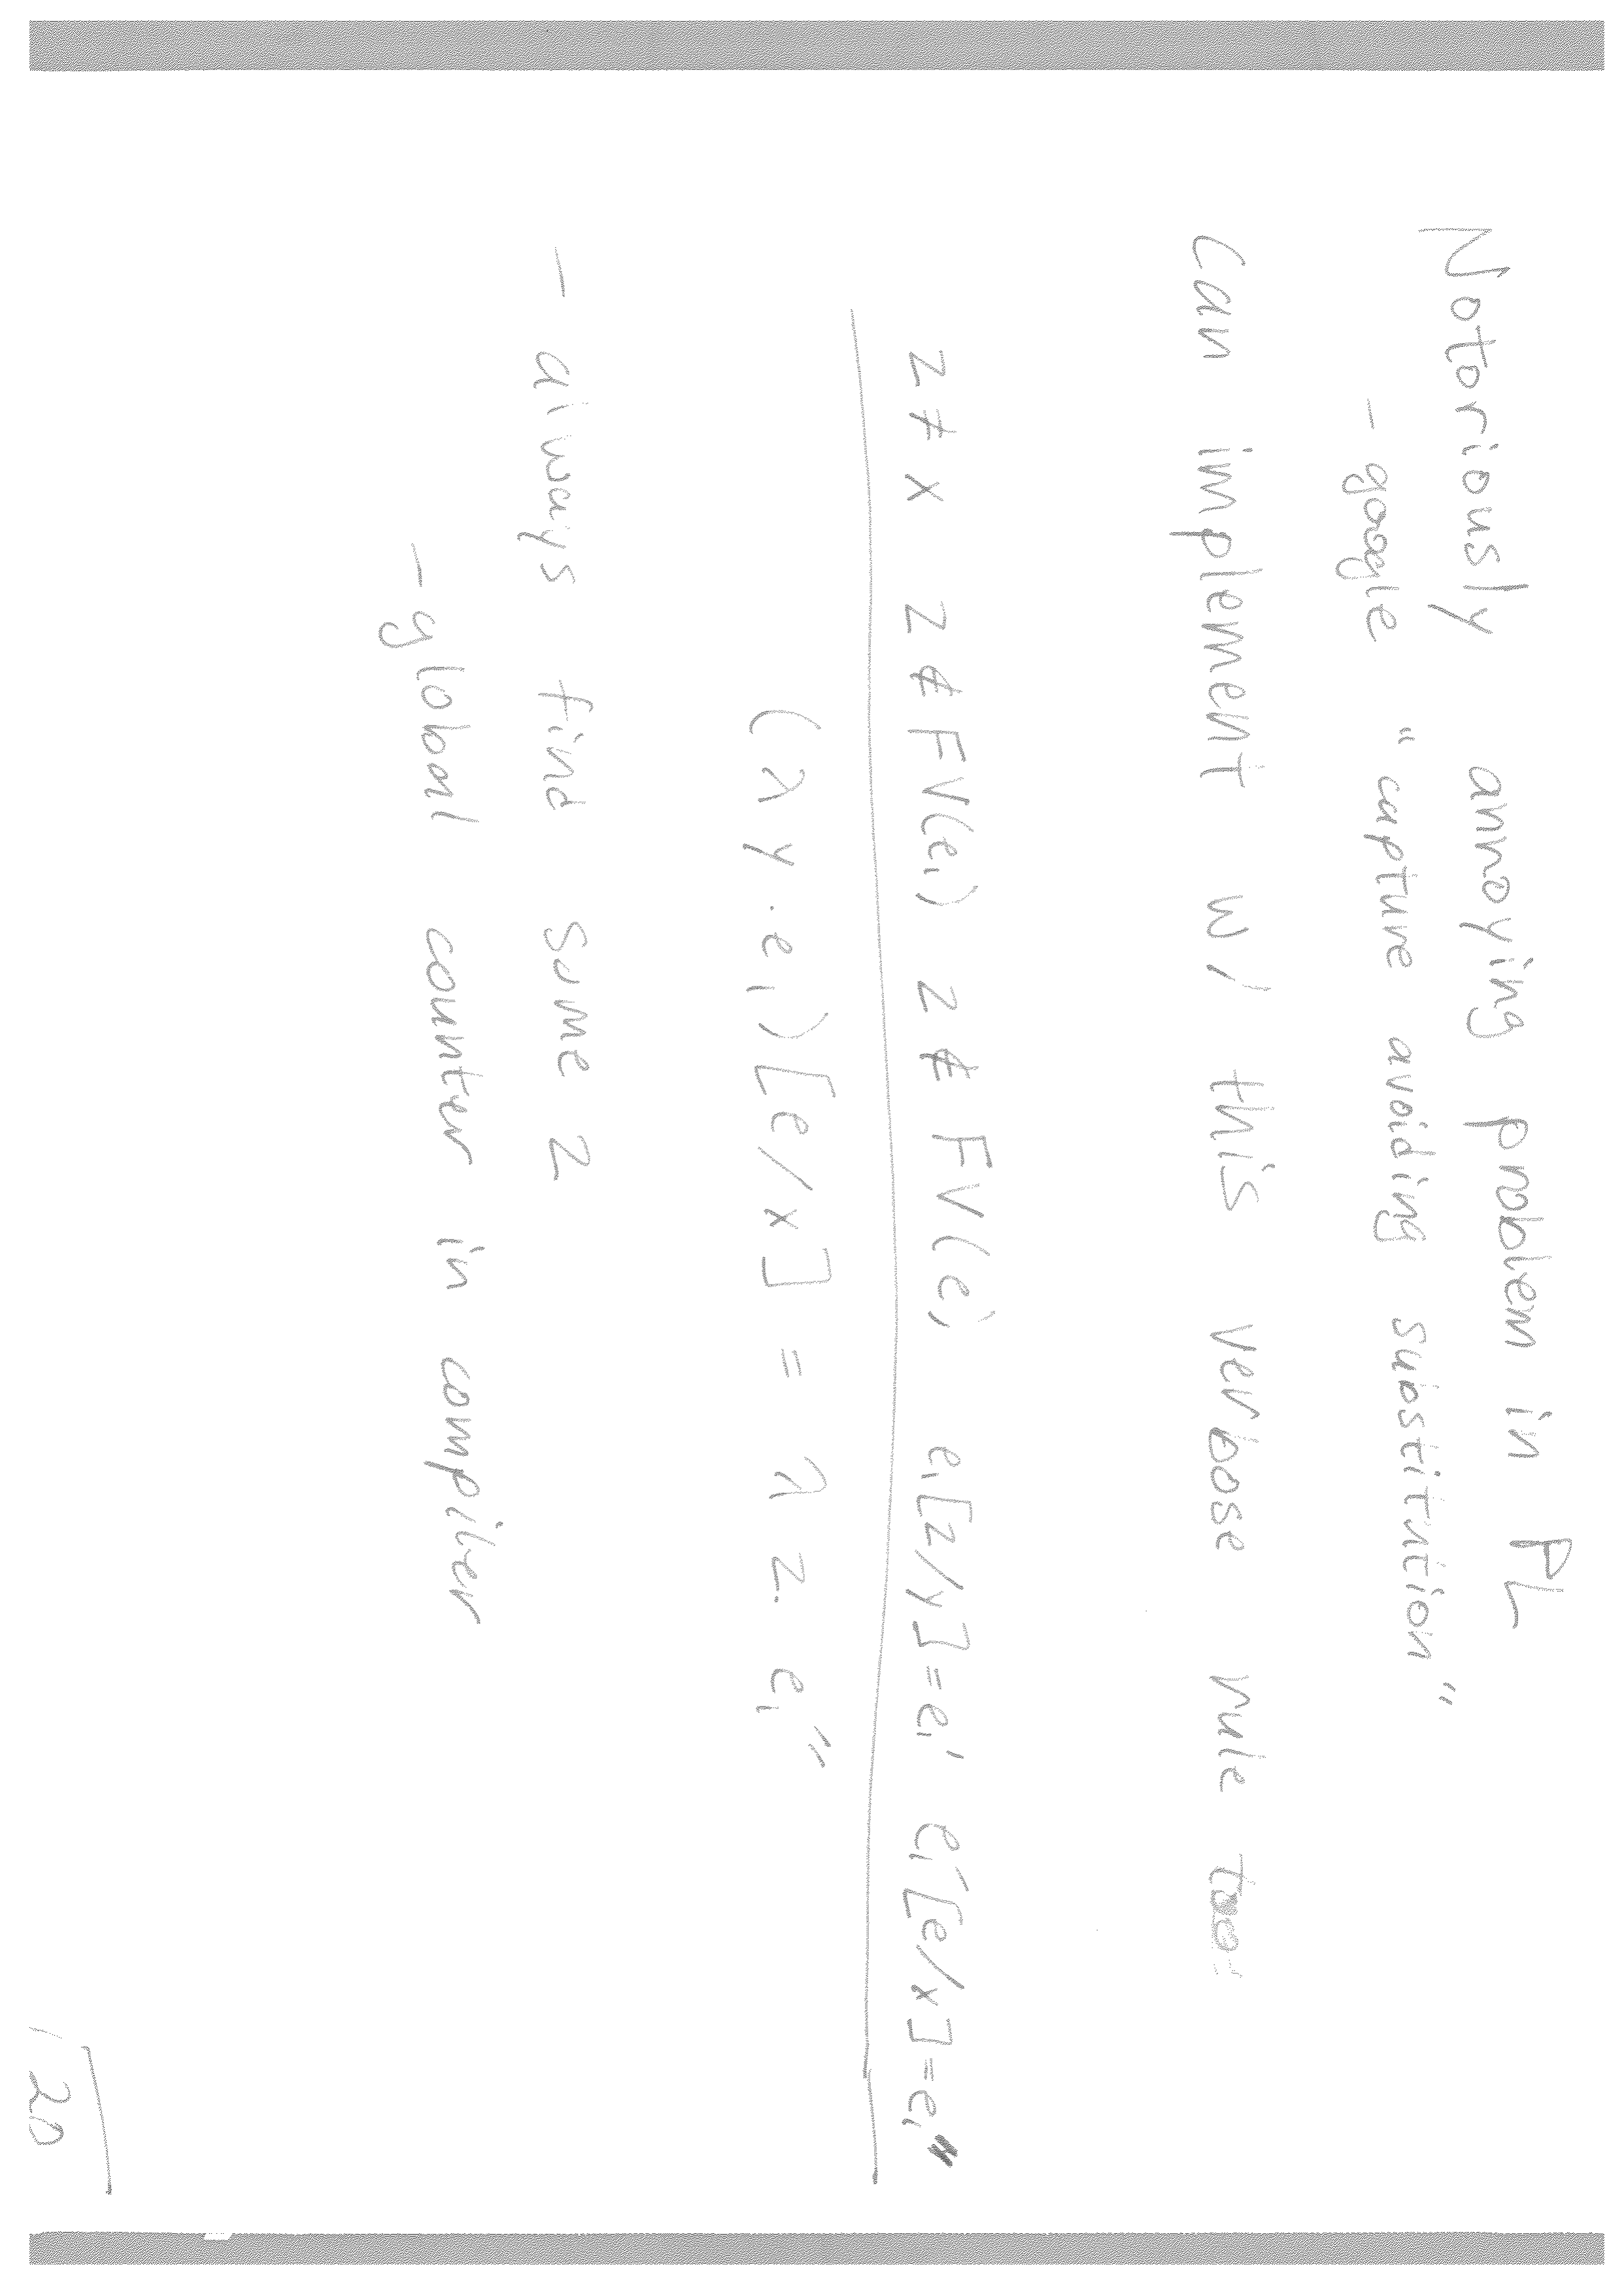 Notoriously annoying problem in PL
- google "capture avoiding substitution"
Can implement w/ this verbose rule too:
z ≠ x z ∉ FV(e₁) z ∉ FV(e) e₁[z/y] = e₁' e₁'[e/x] = e₁''
(λ y . e₁)[e/x] = λ z. e₁''
- always find some z
- global counter in compiler
20